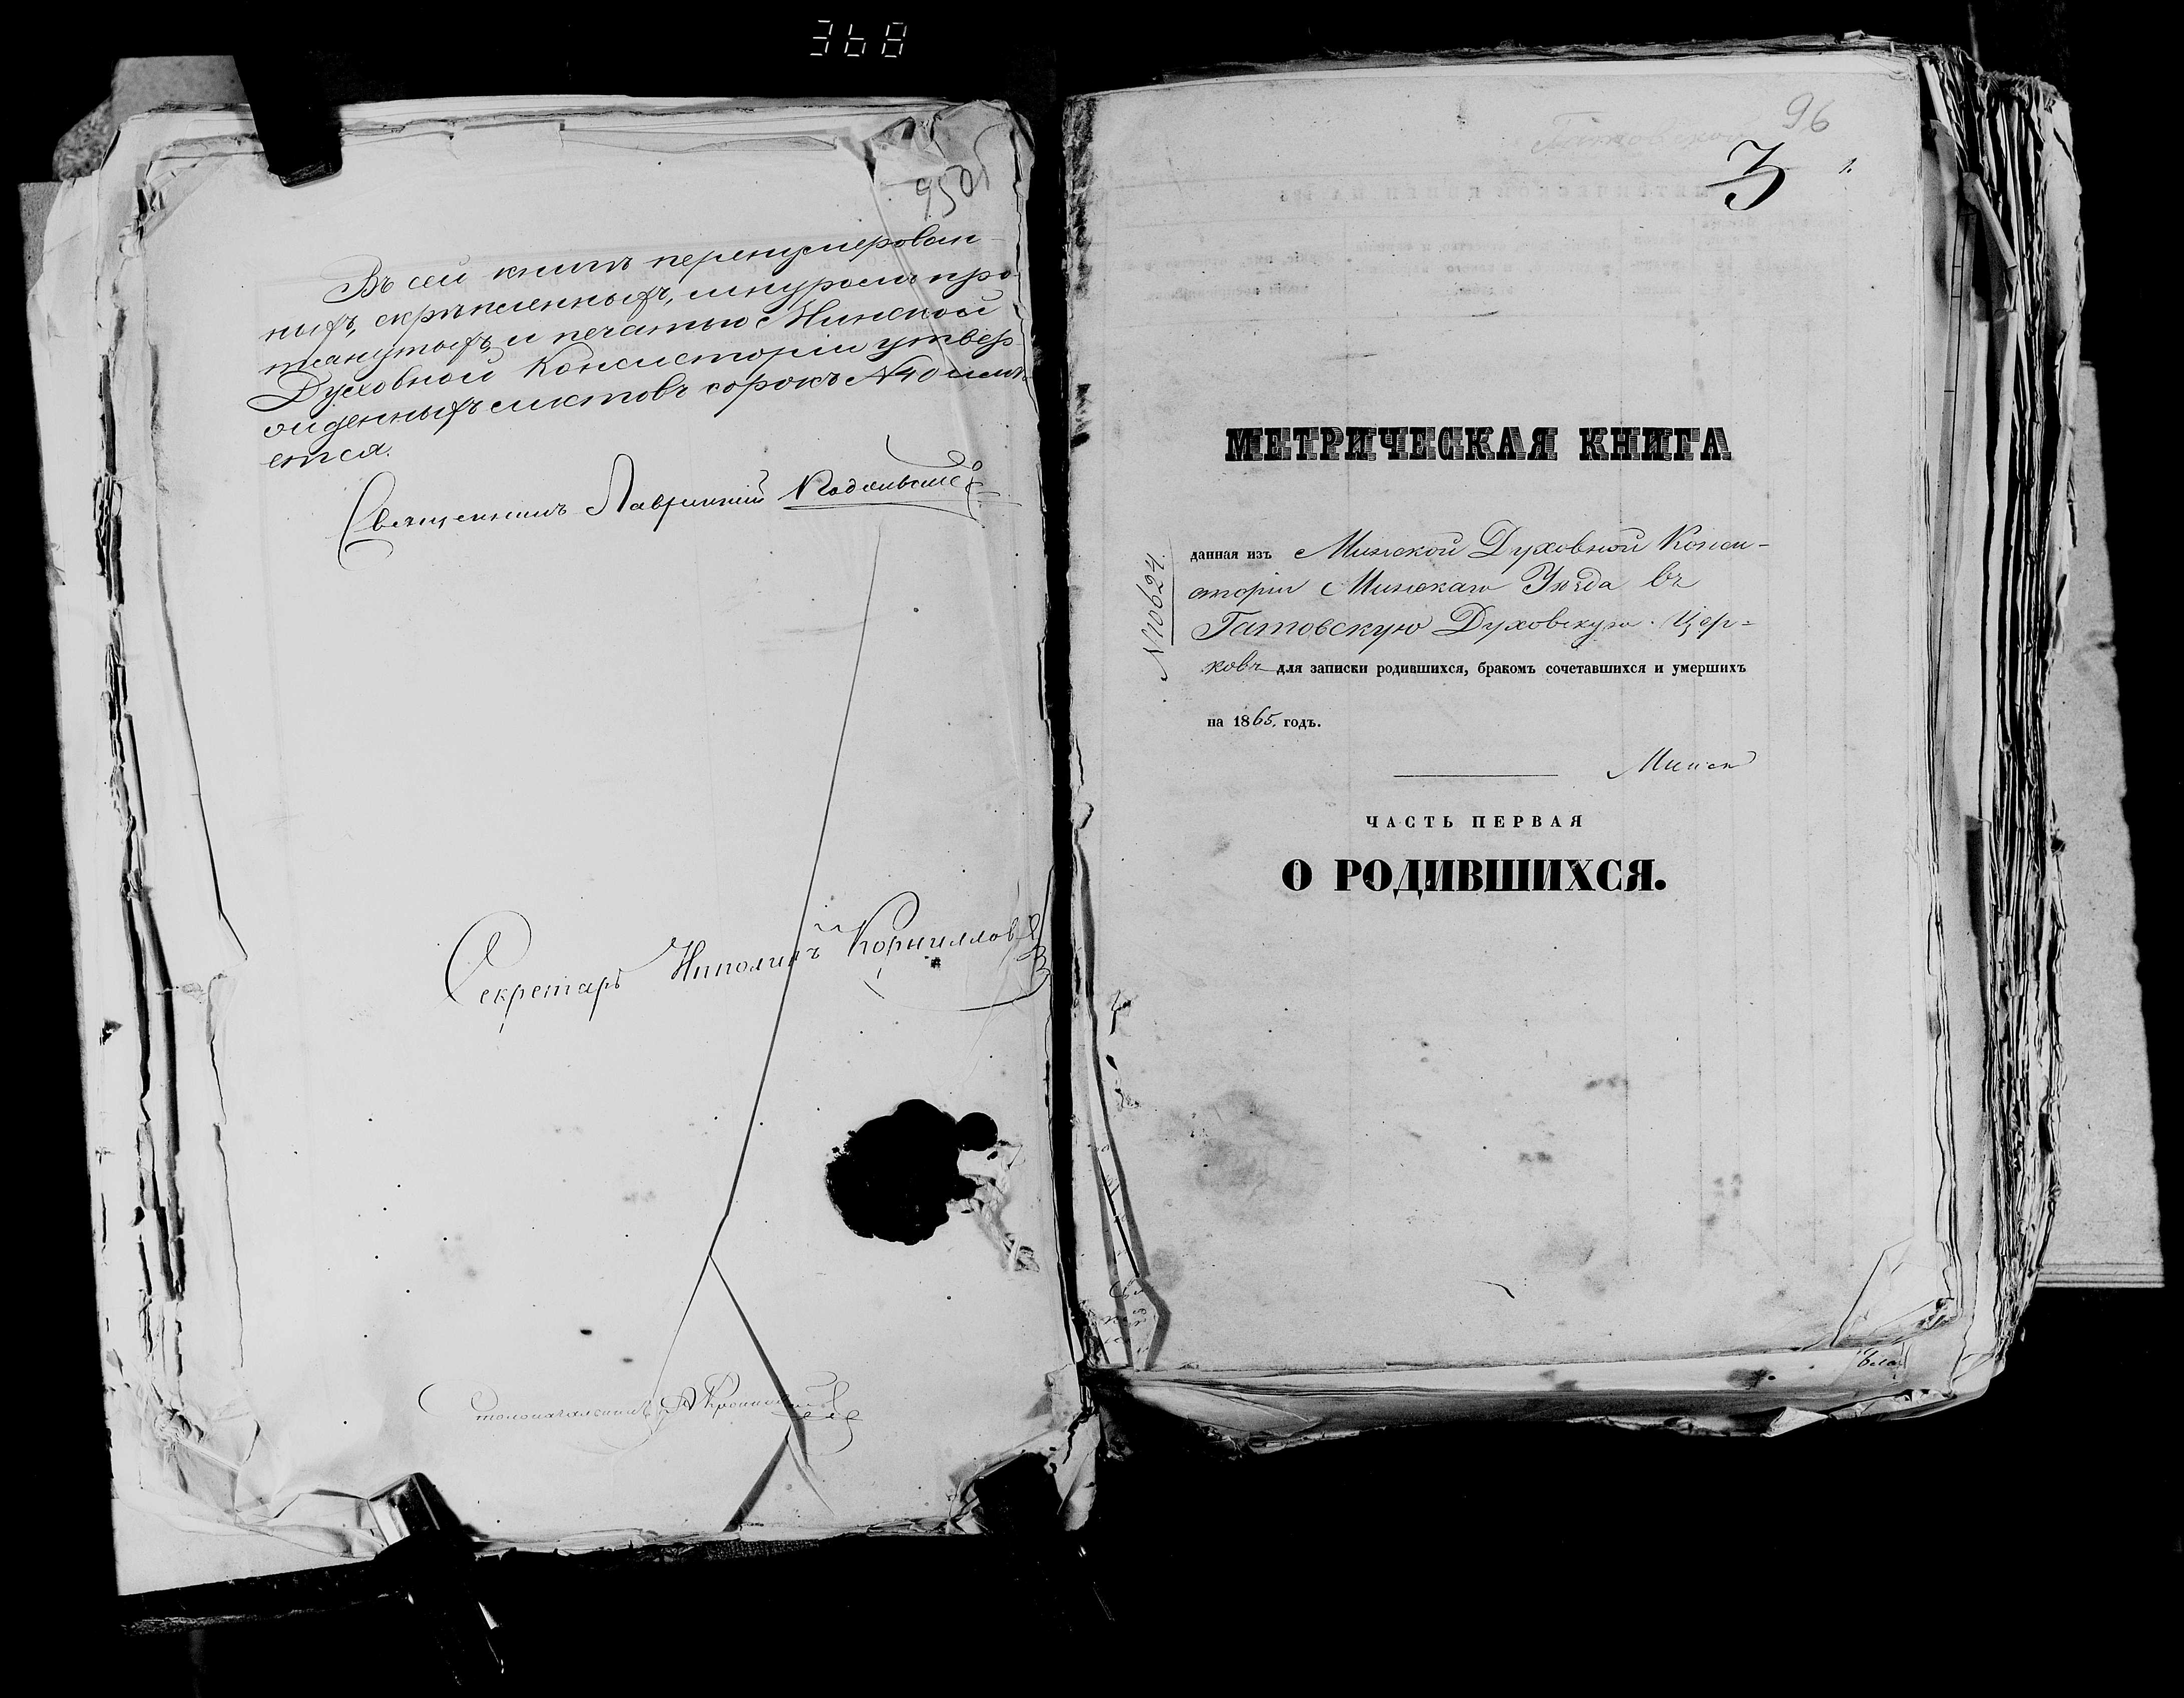 368
95об
Въ сей книгѣ перенумерован-
ныхъ, скрѣпленныхъ, шнуромъ про-
тянутыхъ и печатью Минской
Духовной Консисторіи утвер-
жденныхъ листовъ сорокъ №40 имѣ-
ется.
Священникъ Лаврентій
Секретарь Ипполитъ Корниллов
Столоначальникъ
96
Гатовской
3
1.
МЕТРИЧЕСКАЯ КНИГА
№10624.
данная изъ Минской Духовной Конси-
сторіи Минскаго Уѣзда въ
Гатовскую Духовскую Цер-
ковь для записки родившихся, бракомъ сочетавшихся и умершихъ
на 1865. годъ.
Минск
ЧАСТЬ ПЕРВАЯ
О РОДИВШИХСЯ.